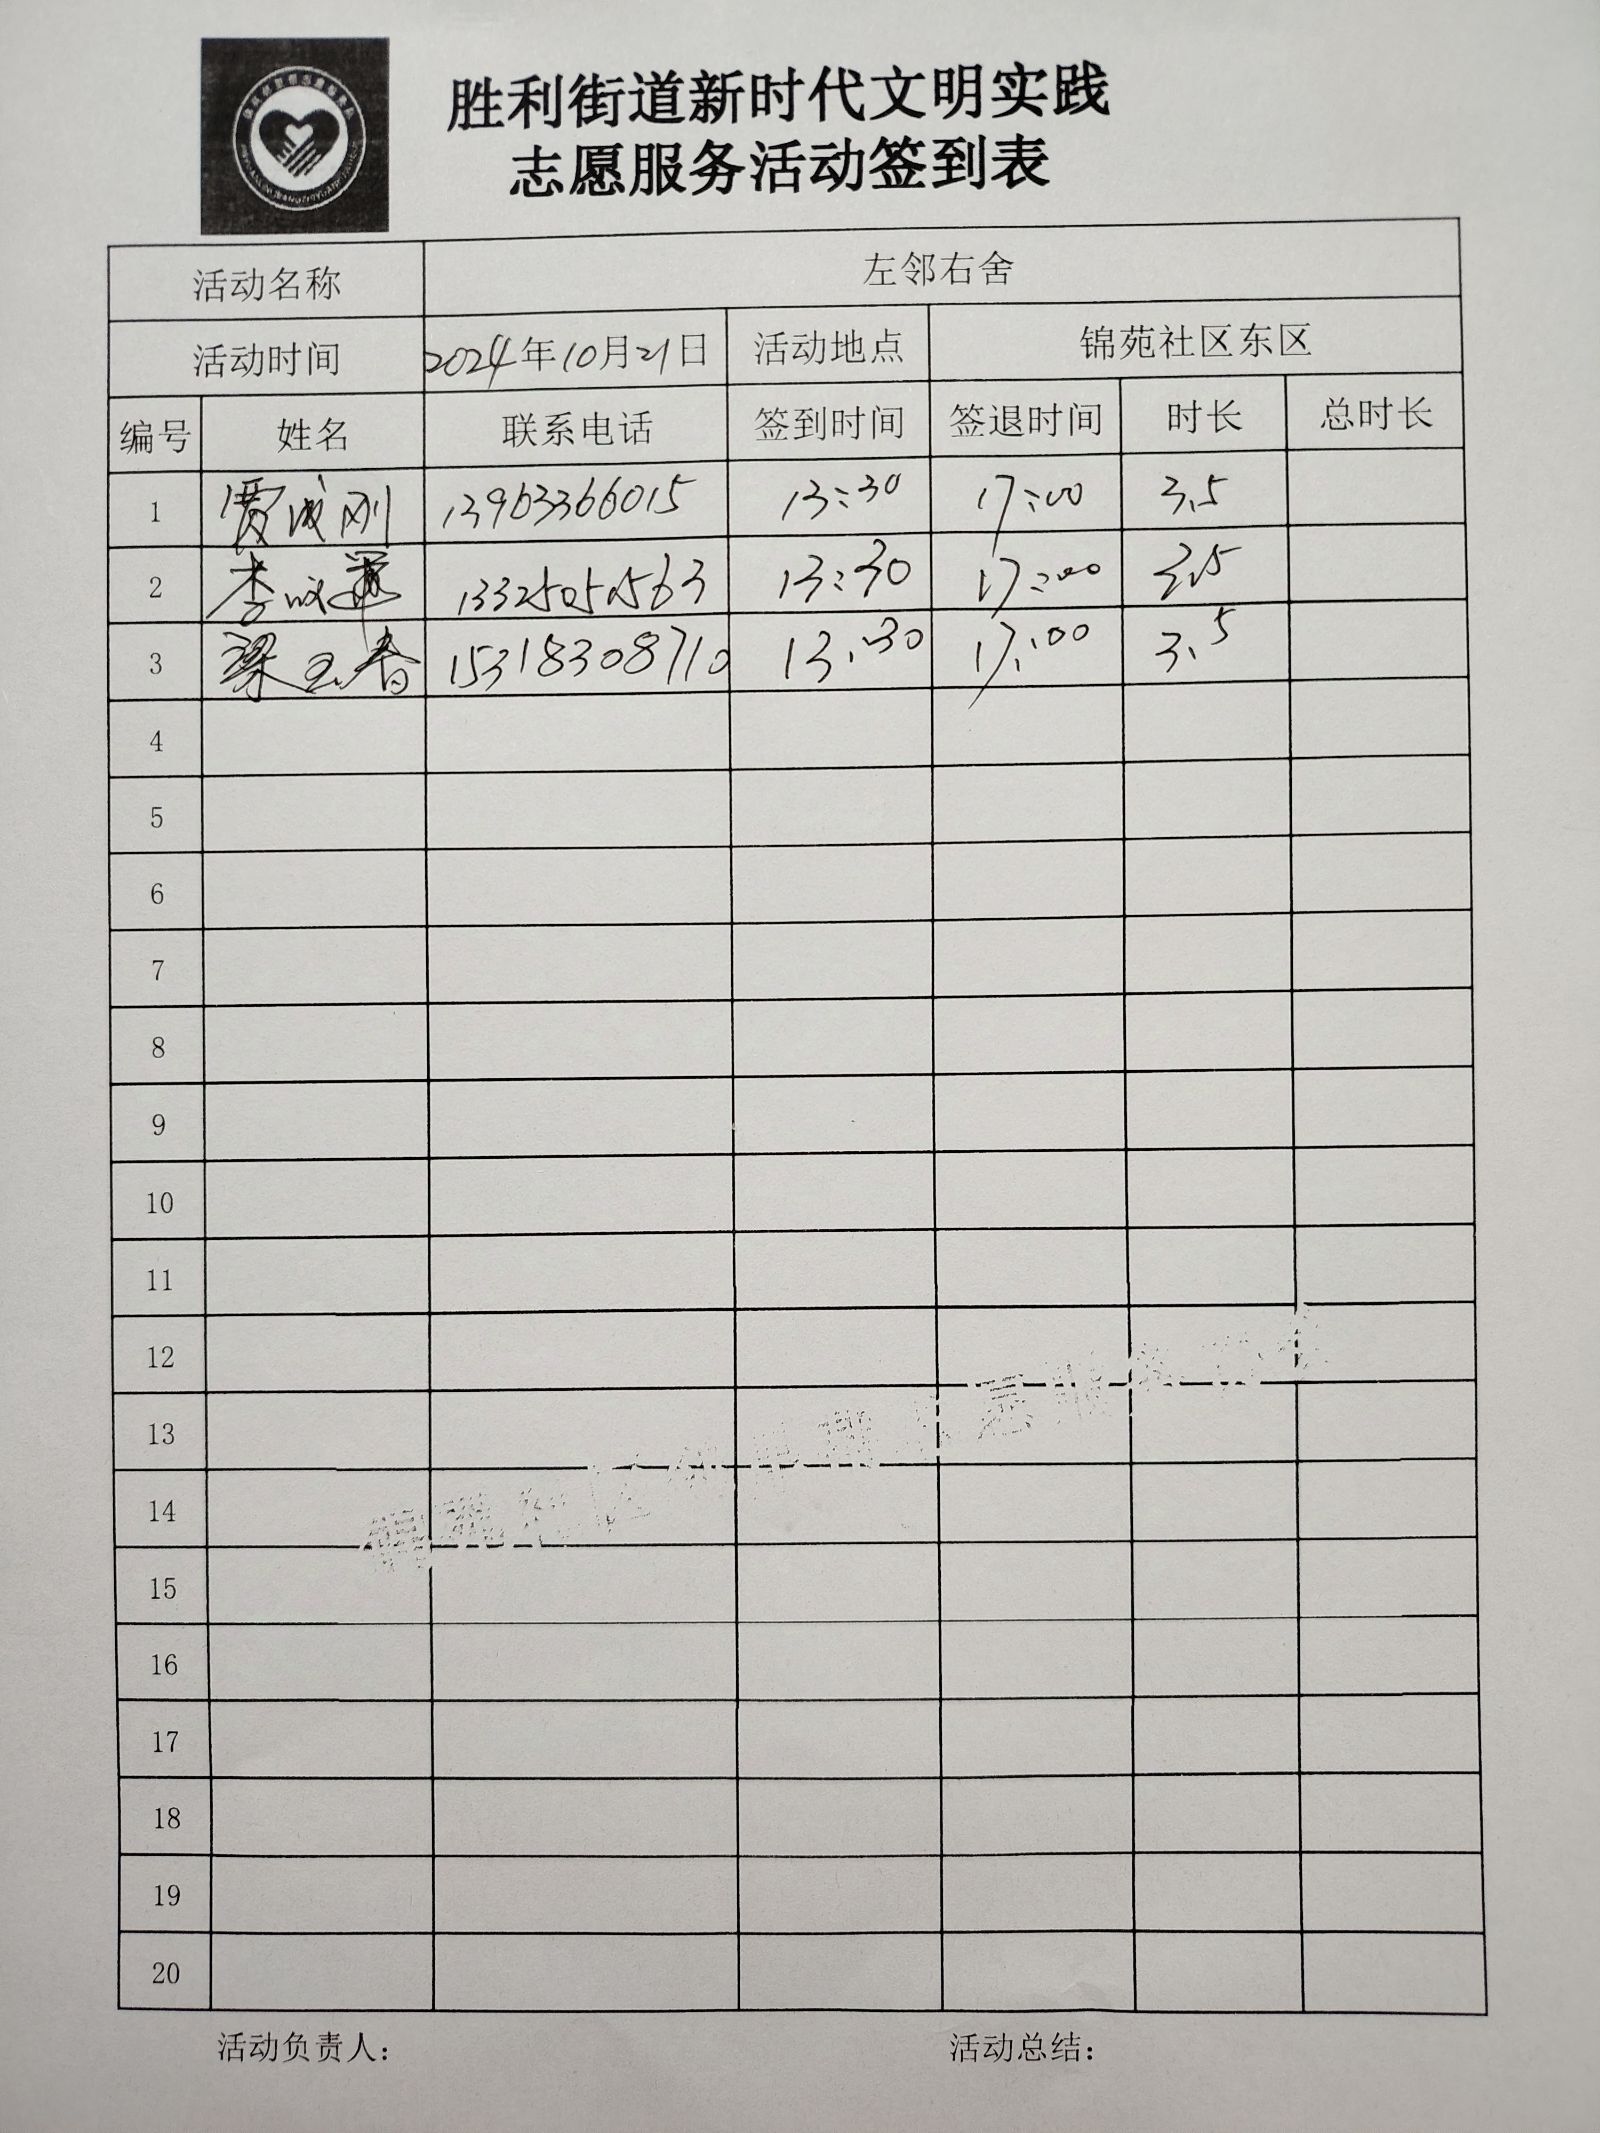 胜利街道新时代文明实践
志愿服务活动签到表
活动名称 左邻右舍
活动时间 2024年10月21日 活动地点 锦苑社区东区
编号 姓名 联系电话 签到时间 签退时间 时长 总时长
1 贾成刚 13963366015 13:30 17:00 3.5
2 李 13325050563 13:30 17:00 3.5
3 梁玉春 15318308710 13:30 17:00 3.5
4
5
6
7
8
9
10
11
12
13
14
15
16
17
18
19
20
活动负责人： 活动总结：